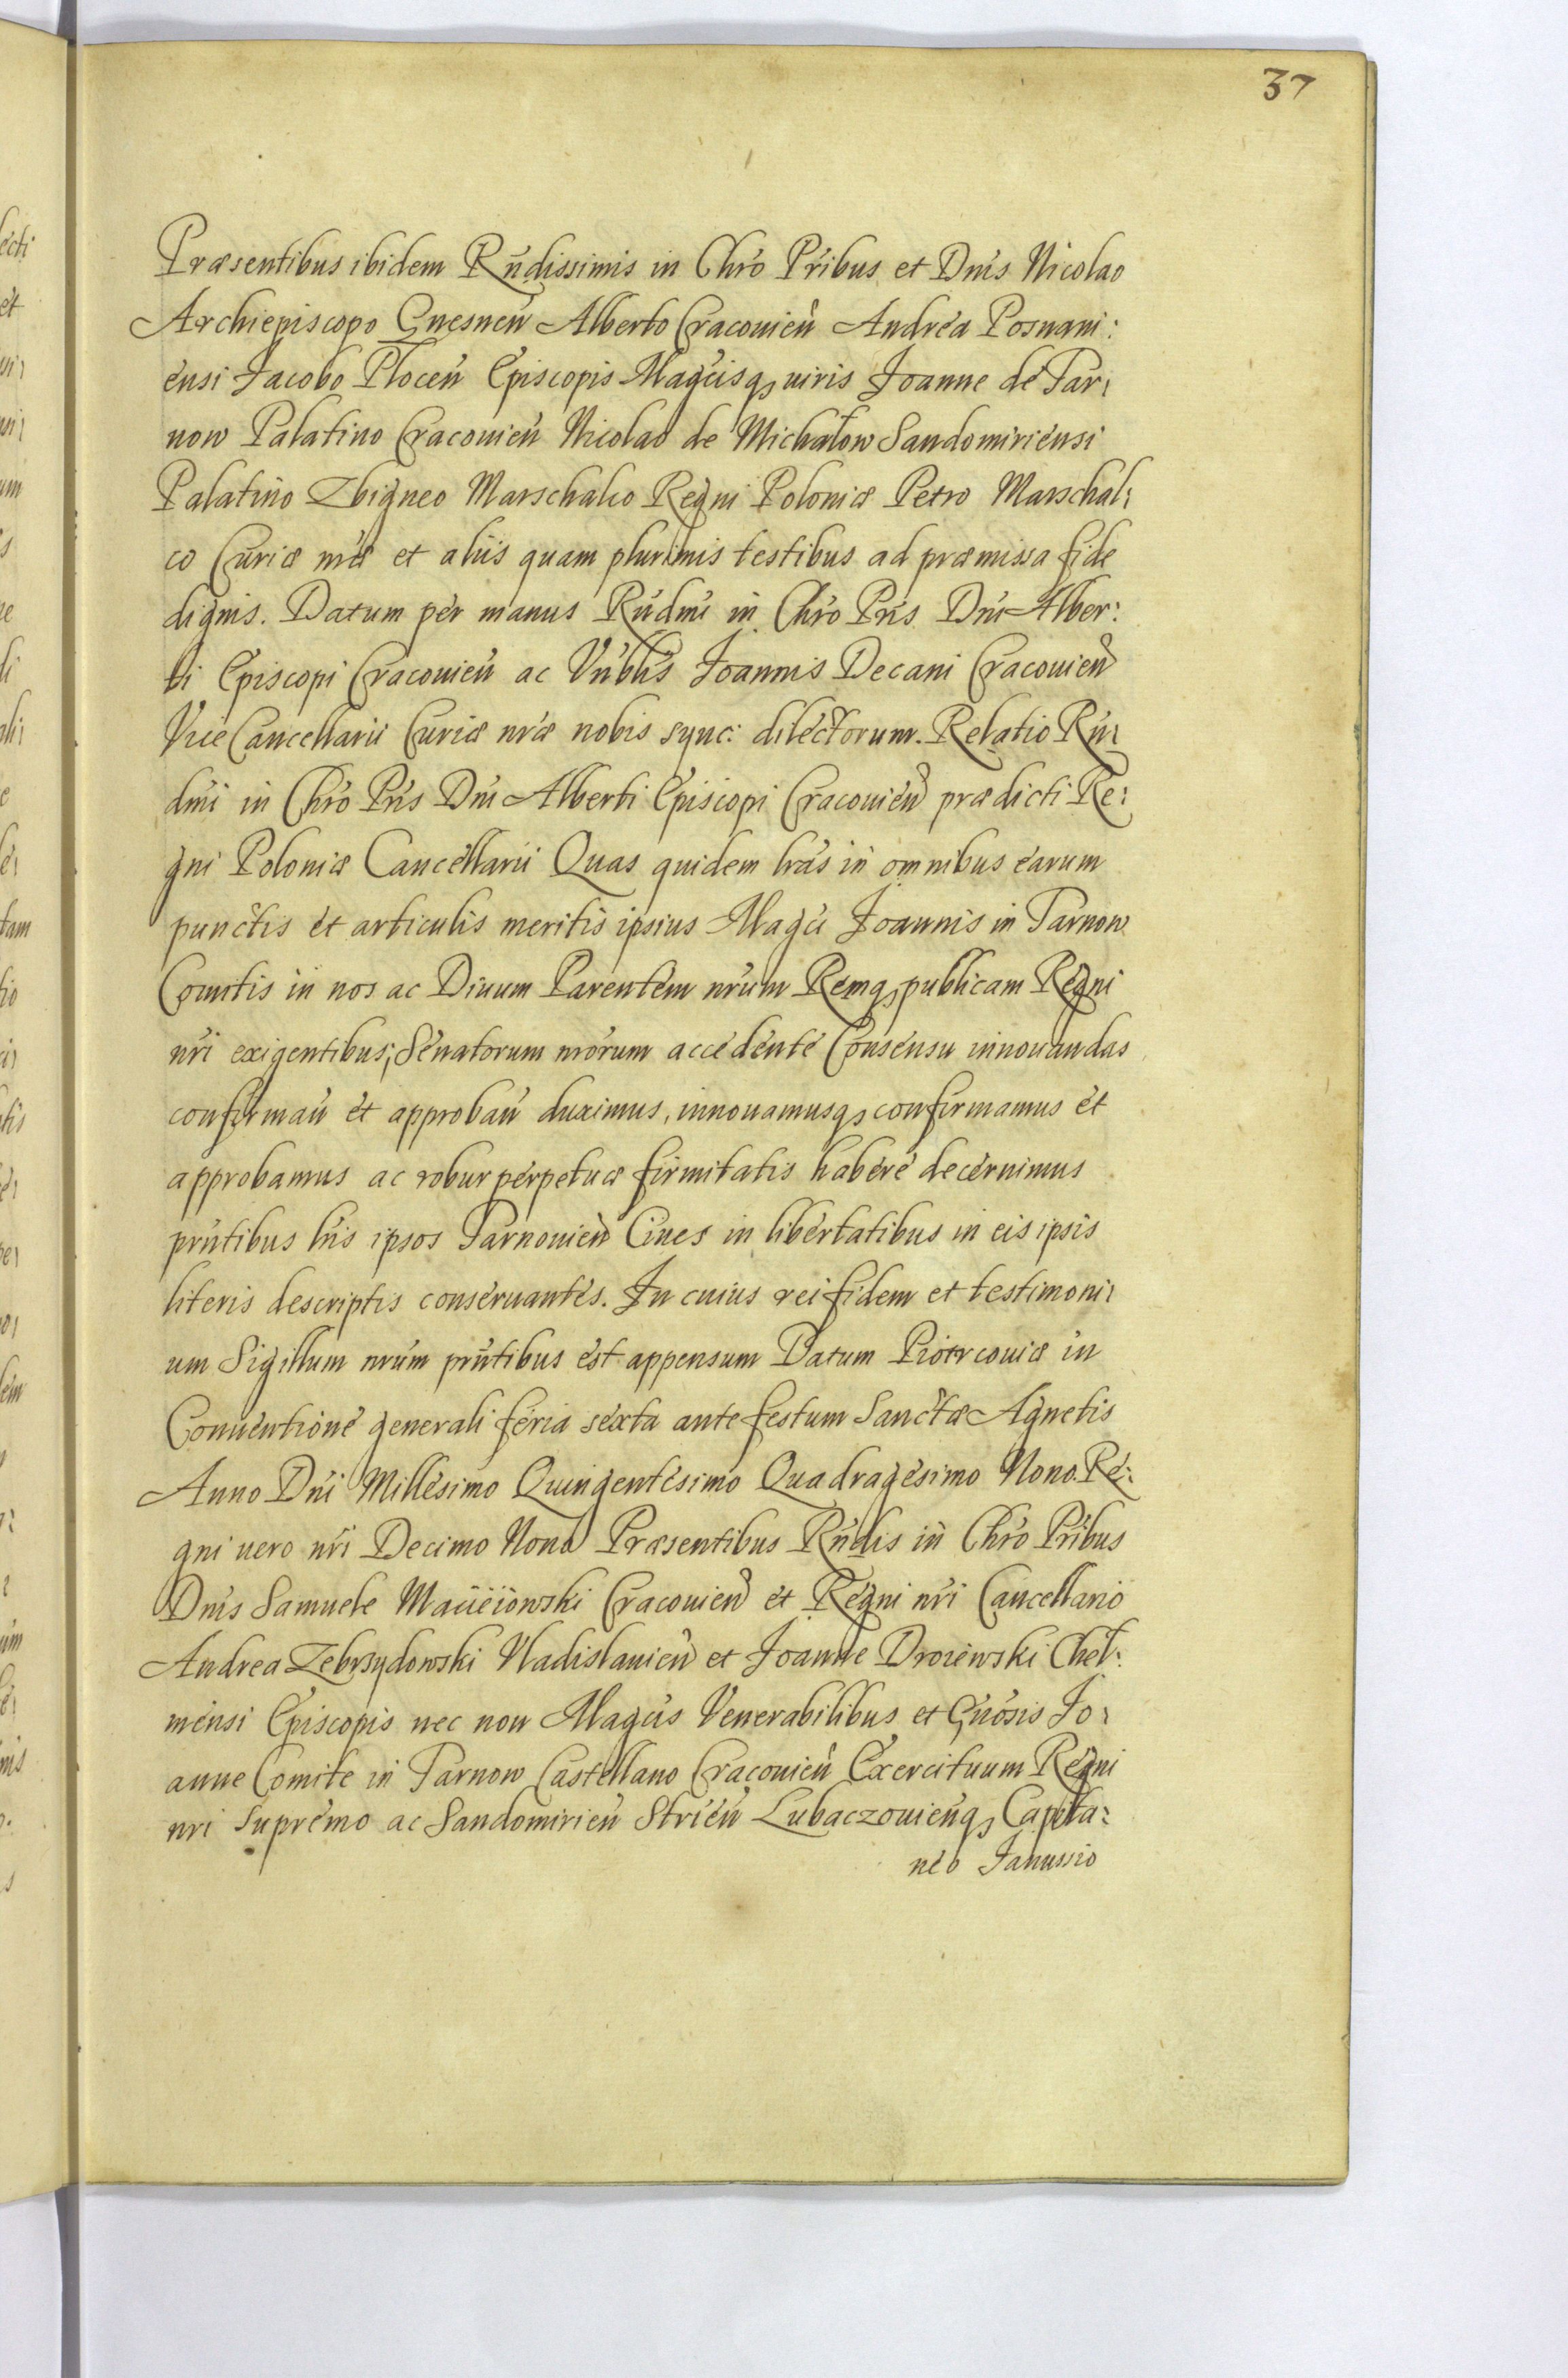 37
Præsentibus ibidem Rńdissimis in Chro Pribus et Dnis Nicolao
Archiepiscopo Gnesneń Alberto Cracouień Andrea Posnani:
ensi Jacobo Ploceń Episcopis Magcisqȝ uiris Joanne de Tar:
now Palatino Cracouień Nicolao de Michałow Sandomiriensi
Palatino Zbigneo Marschalco Regni Poloniæ Petro Marschal:
co Curiæ nræ et aliis quam plurimis testibus ad præmissa fide
dignis. Datum per manus Rńdmi in Chro Pris Dni Alber:
ti Episcopi Cracouień ac Vnblis Joannis Decani Cracouień
Vice Cancellarii Curiæ nræ nobis sync: dilectorum. Relatio Rń:
dmi in Chro Pris Dni Alberti Episcopi Cracouień prædicti Re:
gni Poloniæ Cancellarii Quas quidem lras in omnibus earum
punctis et articulis meritis ipsius Magci Joannis in Tarnow
Comitis in nos ac Diuum Parentem nrum Remqȝ publicam Regni
nri exigentibus; Senatorum nrorum accedente Consensu innouandas
confirmań et approbań duximus, innouamusqȝ confirmamus et
approbamus ac robur perpetuæ firmitatis habere decernimus
prńtibus lris ipsos Tarnouień Ciues in libertatibus in eis ipsis
literis descriptis conseruantes. In cuius rei fidem et testimoni:
um Sigillum nrum prńtibus est appensum Datum Piotrcouiæ in
Conuentione generali feria sexta ante festum Sanctæ Agnetis
Anno Dni Millesimo Quingentesimo Quadragesimo Nono. Re:
gni uero nri Decimo Nono Præsentibus Rńdis in Chro Pribus
Dnis Samuele Macieiowski Cracouień et Regni nri Cancellario
Andrea Zebrsydowski Vladislauień et Joanne Drozewski Cheł:
mensi Episcopis nec non Magcis Venerabilibus et Gnosis Jo:
anne Comite in Tarnow Castellano Cracouień Exercituum Regni
nri supremo ac Sandomirień Strień Lubaczouieńqȝ Capita:
neo Janussio